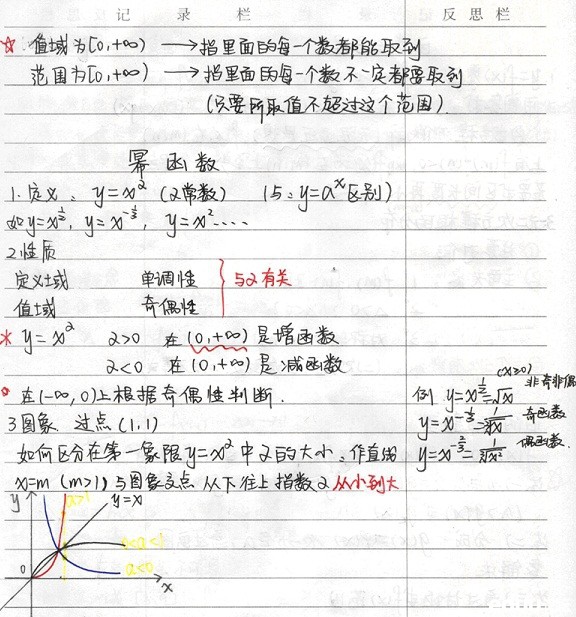 记 录 栏
反 思 栏
☆ 值域为[0,+∞) ⟶ 指里面的每一个数都能取到
范围为[0,+∞) ⟶ 指里面的每一个数不一定都要取到
(只要所取值不超过这个范围).
幂函数
1.定义: y=x^α (α常数) (与: y=a^x区别)
如y=x^{1/2}, y=x^{-1/3}, y=x^2....
2.性质
定义域 单调性 } 与α有关
值域 奇偶性
* y=x^α α>0 在(0,+∞)是增函数
α<0 在(0,+∞)是减函数
在(-∞,0)上根据奇偶性判断.
3图象. 过点(1,1)
如何区分在第一象限y=x^α中α的大小,作直线
x=m (m>1)与图象交点 从下往上指数α从小到大
例 y=x^{1/2}=√x (x≥0) 非奇非偶
y=x^{-1/3}=1/∛x 奇函数
y=x^{-2/3}=1/∛x² 偶函数.
y
a>1
y=x
0<a<1
a<0
0
x